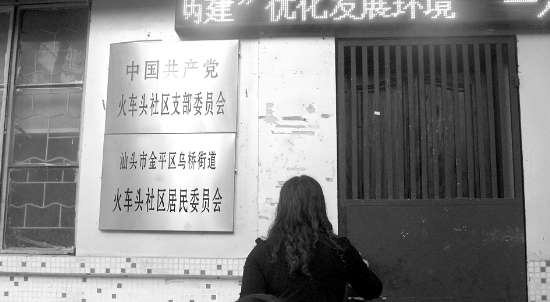 两建”优化发展环境
中国共产党
火车头社区支部委员会
汕头市金平区乌桥街道
火车头社区居民委员会